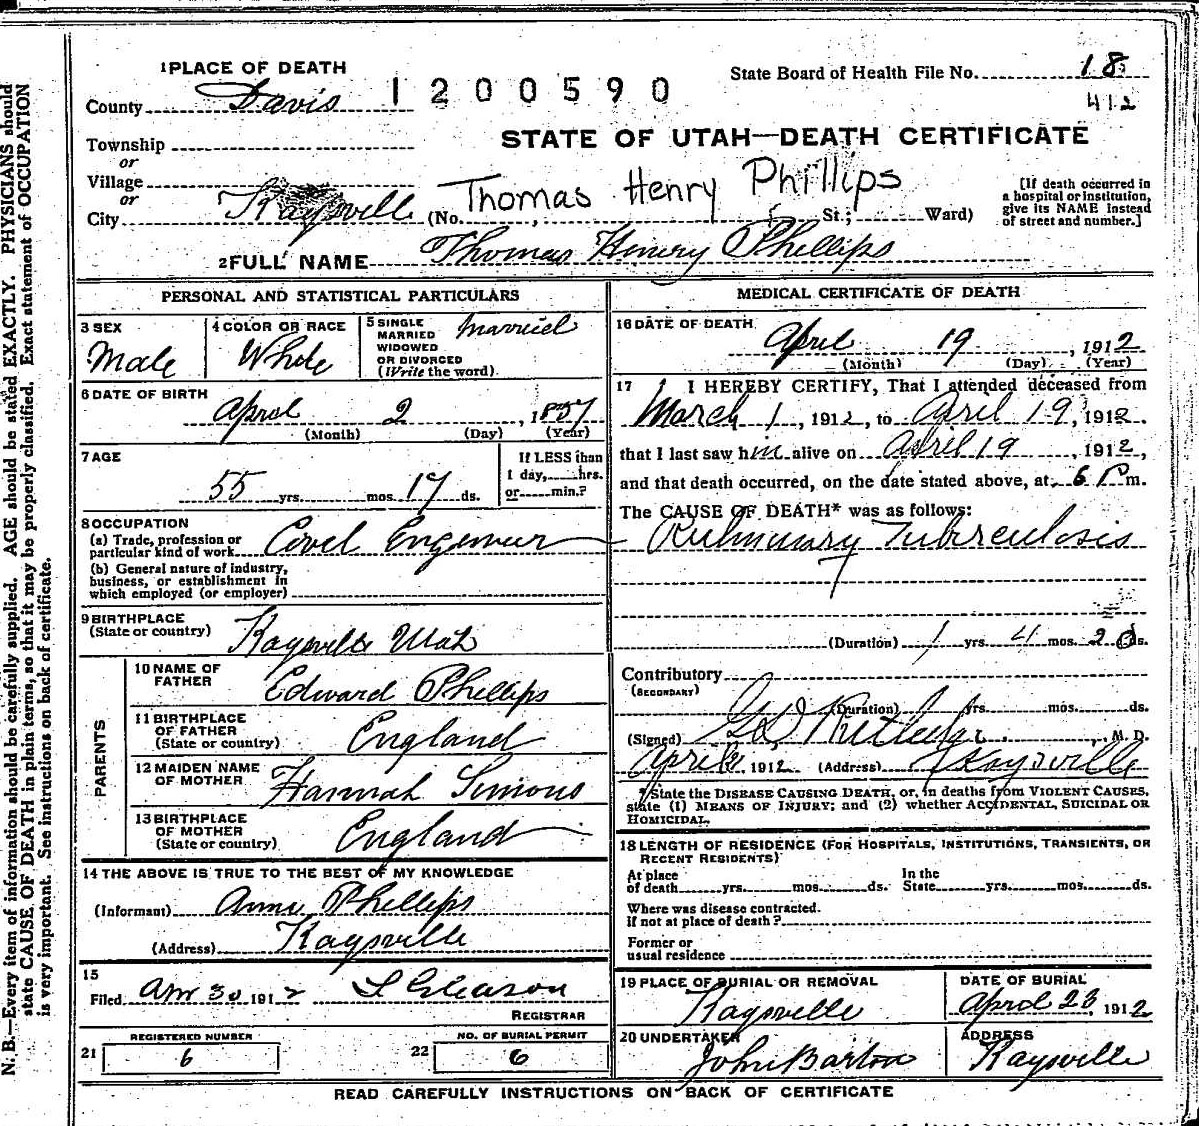 1 PLACE OF DEATH
County Davis
1200590
State Board of Health File No. 18
412
Township
or
Village
or
City Kaysville
STATE OF UTAH—DEATH CERTIFICATE
Thomas Henry Phillips
(No. St.; Ward)
[If death occurred in
a hospital or institution,
give its NAME instead
of street and number.]
2 FULL NAME Thomas Henry Phillips
PERSONAL AND STATISTICAL PARTICULARS
3 SEX
Male
4 COLOR OR RACE
White
5 SINGLE
MARRIED
WIDOWED
OR DIVORCED
(Write the word)
Married
6 DATE OF BIRTH
April 2, 1857
(Month) (Day) (Year)
7 AGE
55 yrs. mos. 17 ds.
If LESS than
1 day, hrs.
or min.?
8 OCCUPATION
(a) Trade, profession or
particular kind of work Civil Engineer
(b) General nature of industry,
business, or establishment in
which employed (or employer)
9 BIRTHPLACE
(State or country) Kaysville Utah
PARENTS
10 NAME OF
FATHER Edward Phillips
11 BIRTHPLACE
OF FATHER
(State or country) England
12 MAIDEN NAME
OF MOTHER Hannah Simons
13 BIRTHPLACE
OF MOTHER
(State or country) England
14 THE ABOVE IS TRUE TO THE BEST OF MY KNOWLEDGE
(Informant) Phillips
(Address) Kaysville
15
Filed Apr 30 1912 Gleason
REGISTRAR
REGISTERED NUMBER
21 6
NO. OF BURIAL PERMIT
22 6
MEDICAL CERTIFICATE OF DEATH
16 DATE OF DEATH
April 19, 1912
(Month) (Day) (Year)
17 I HEREBY CERTIFY, That I attended deceased from
March 1, 1912, to April 19, 1912.
that I last saw him alive on April 19, 1912,
and that death occurred, on the date stated above, at 6 P m.
The CAUSE OF DEATH* was as follows:
Pulmonary Tuberculosis
(Duration) 1 yrs. 4 mos. 20 ds.
Contributory
(SECONDARY)
(Duration) yrs. mos. ds.
(Signed) M. D.
April 1912 (Address) Kaysville
*State the DISEASE CAUSING DEATH, or, in deaths from VIOLENT CAUSES,
state (1) MEANS OF INJURY; and (2) whether ACCIDENTAL, SUICIDAL OR
HOMICIDAL.
18 LENGTH OF RESIDENCE (FOR HOSPITALS, INSTITUTIONS, TRANSIENTS, OR
RECENT RESIDENTS)
At place
of death yrs. mos. ds.
In the
State yrs. mos. ds.
Where was disease contracted.
If not at place of death?
Former or
usual residence
19 PLACE OF BURIAL OR REMOVAL
Kaysville
DATE OF BURIAL
April 23, 1912
20 UNDERTAKER
John Barton
ADDRESS
Kaysville
READ CAREFULLY INSTRUCTIONS ON BACK OF CERTIFICATE
N. B.—Every item of information should be carefully supplied. AGE should be stated EXACTLY. PHYSICIANS should
state CAUSE OF DEATH in plain terms, so that it may be properly classified. Exact statement of OCCUPATION
is very important. See instructions on back of certificate.